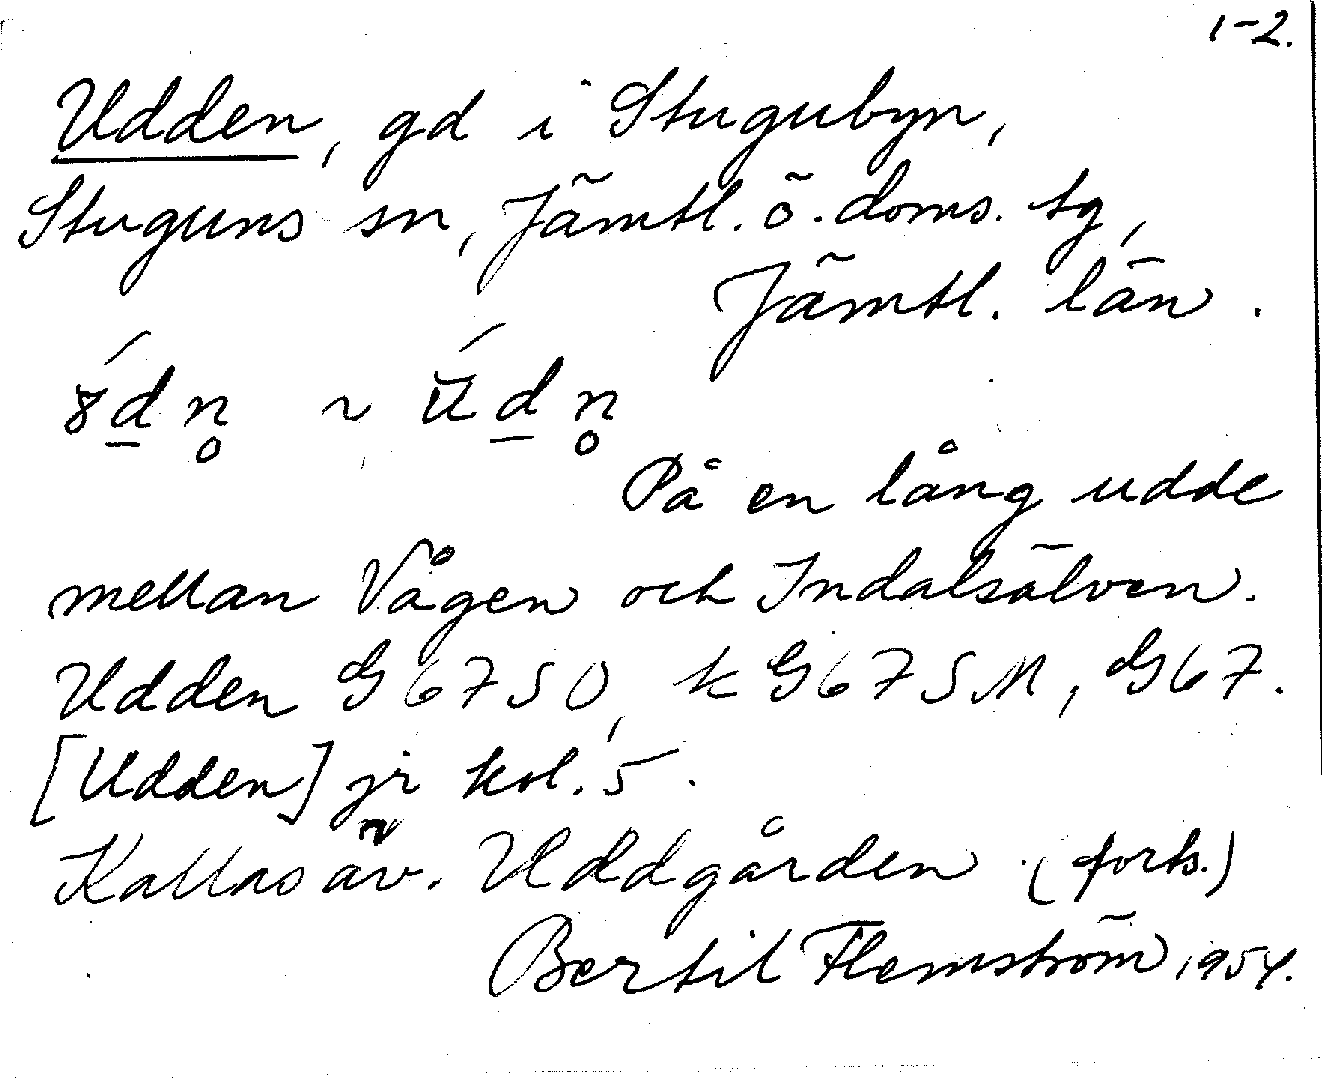 1-2.
Udden, gd i Stugubyn,
Stuguns sn, Jämtl. ö. doms. tg,
Jämtl. län.
På en lång udde
mellan Vågen och Indalsälven.
Udden G67SO, k G67SM, G67.
[Udden] jr kol. 5.
Kallas äv. Uddgården (forts.)
Bertil Flemström 1954.